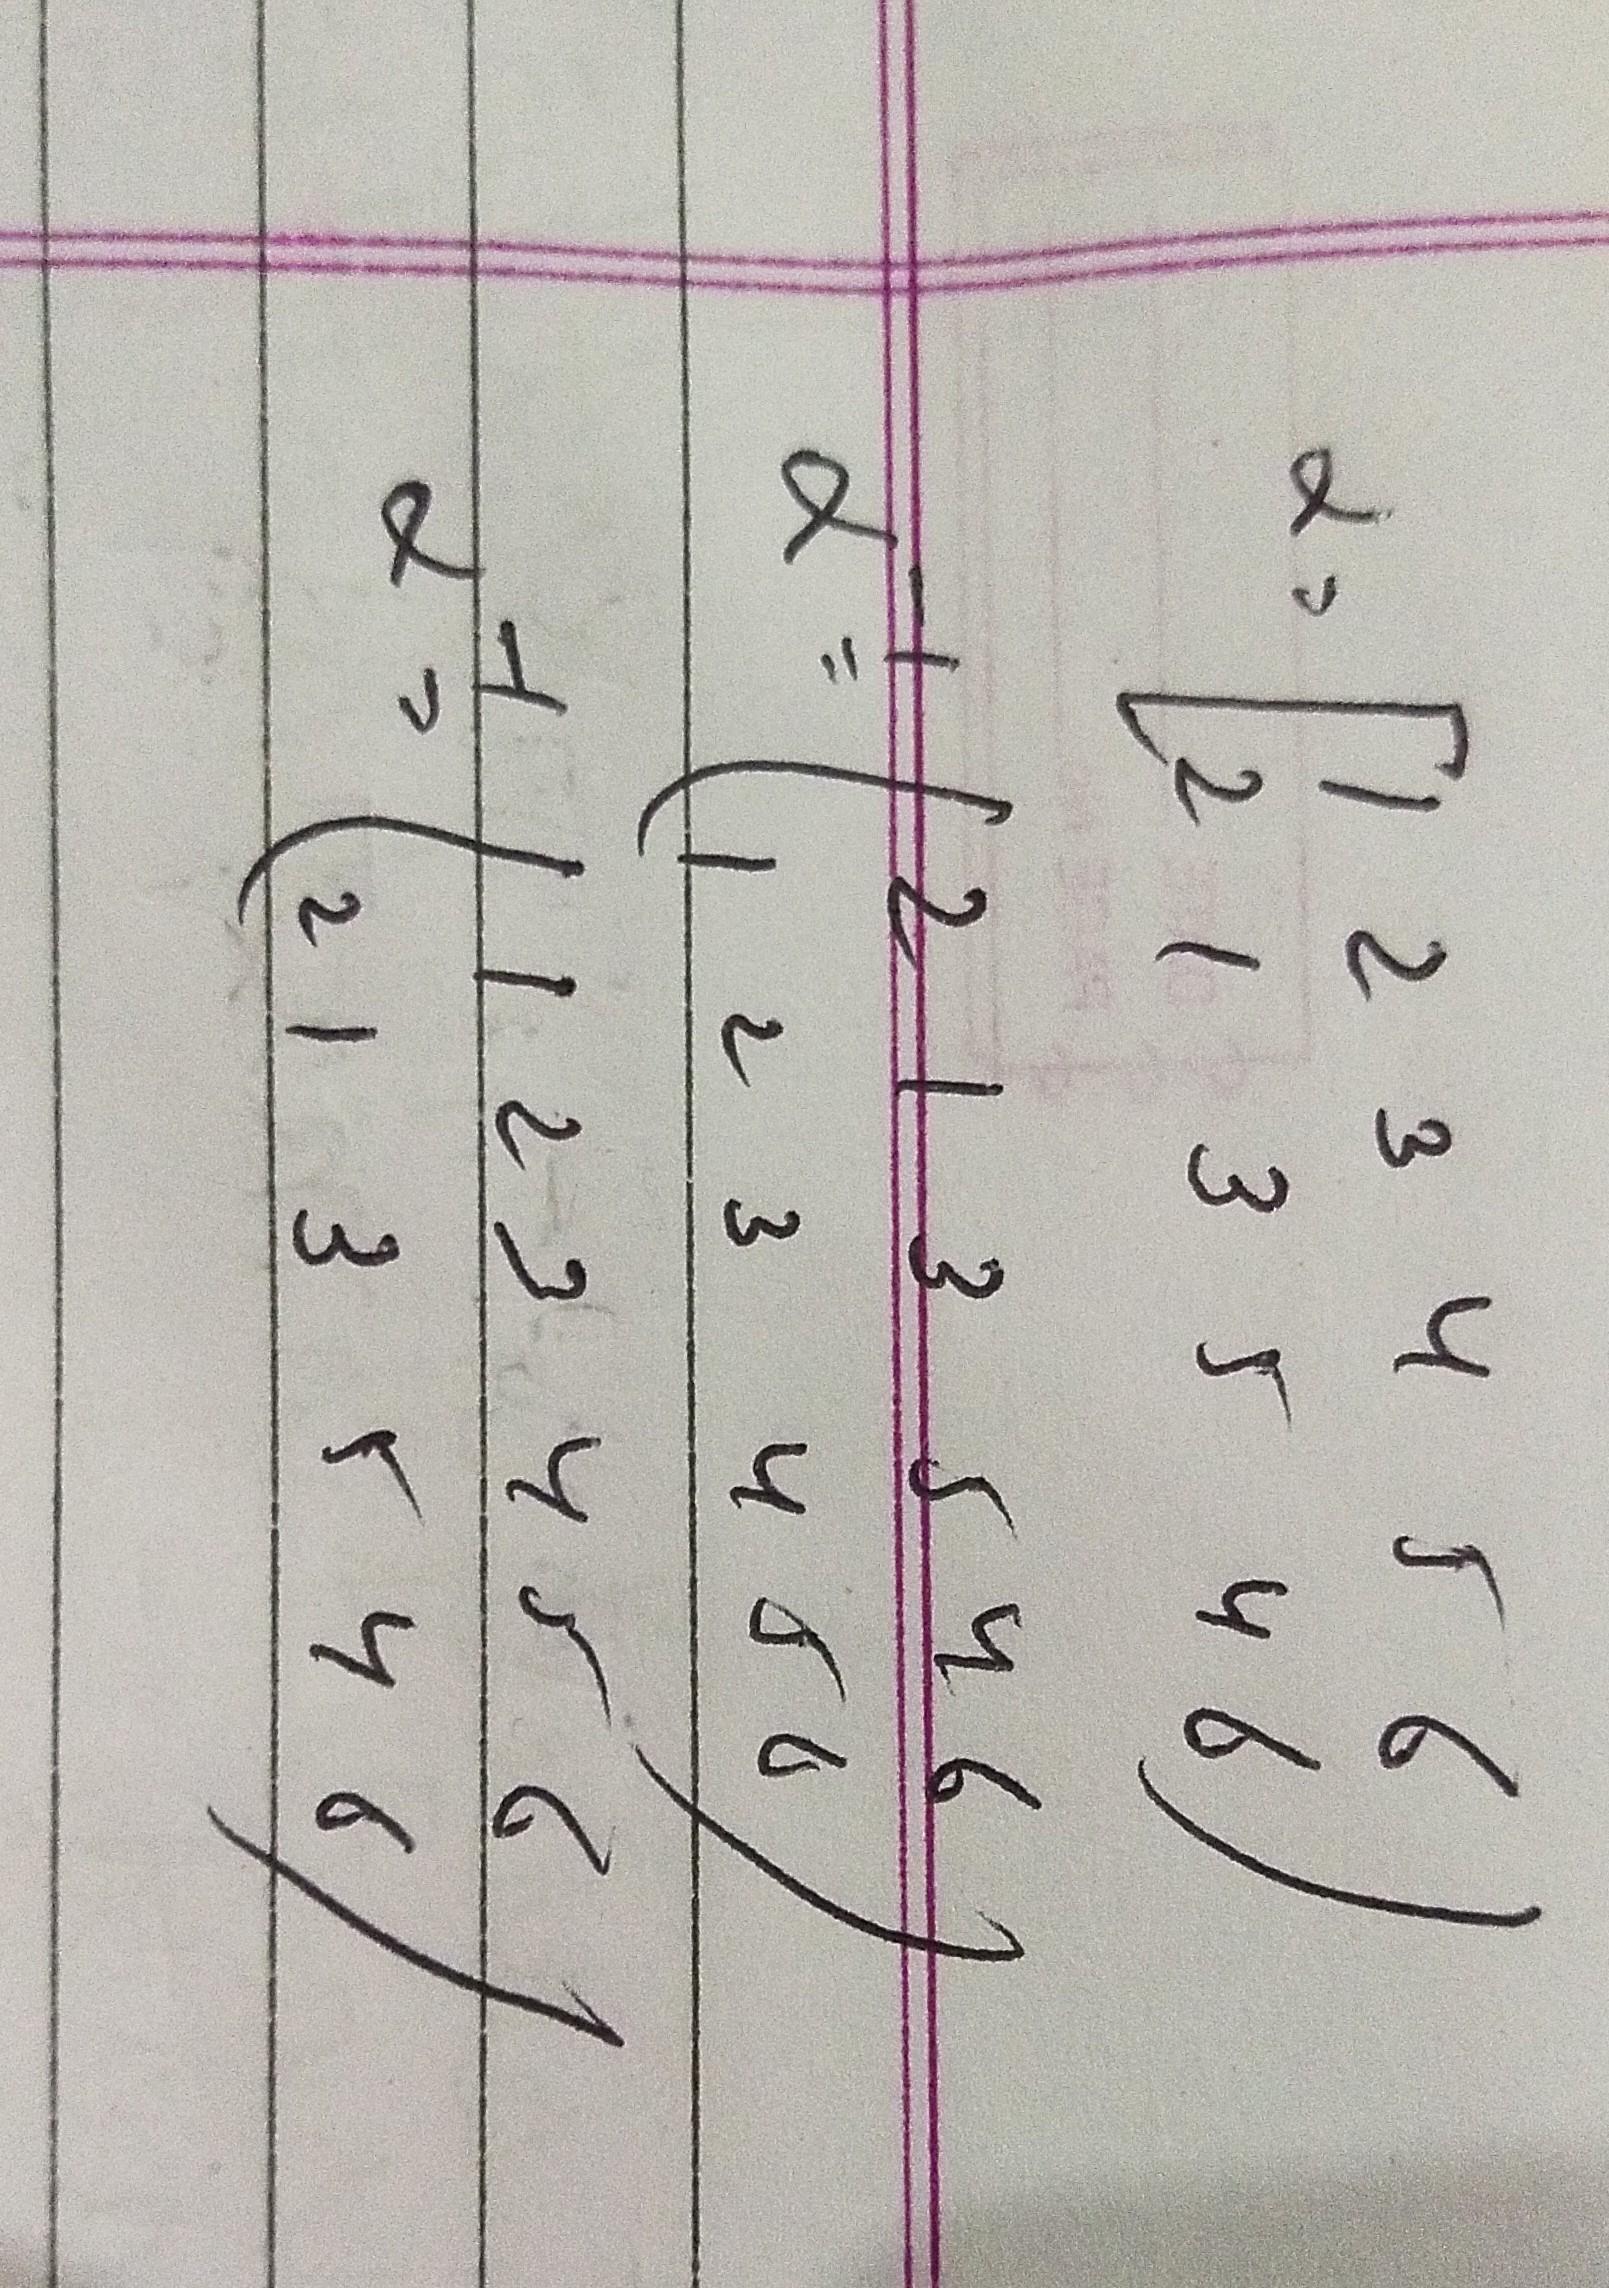 α = [ 1 2 3 4 5 6
2 1 3 5 4 6 )
α⁻¹ = ( 2 1 3 5 4 6
1 2 3 4 5 6 )
α⁻¹ = ( 1 2 3 4 5 6
2 1 3 5 4 6 )